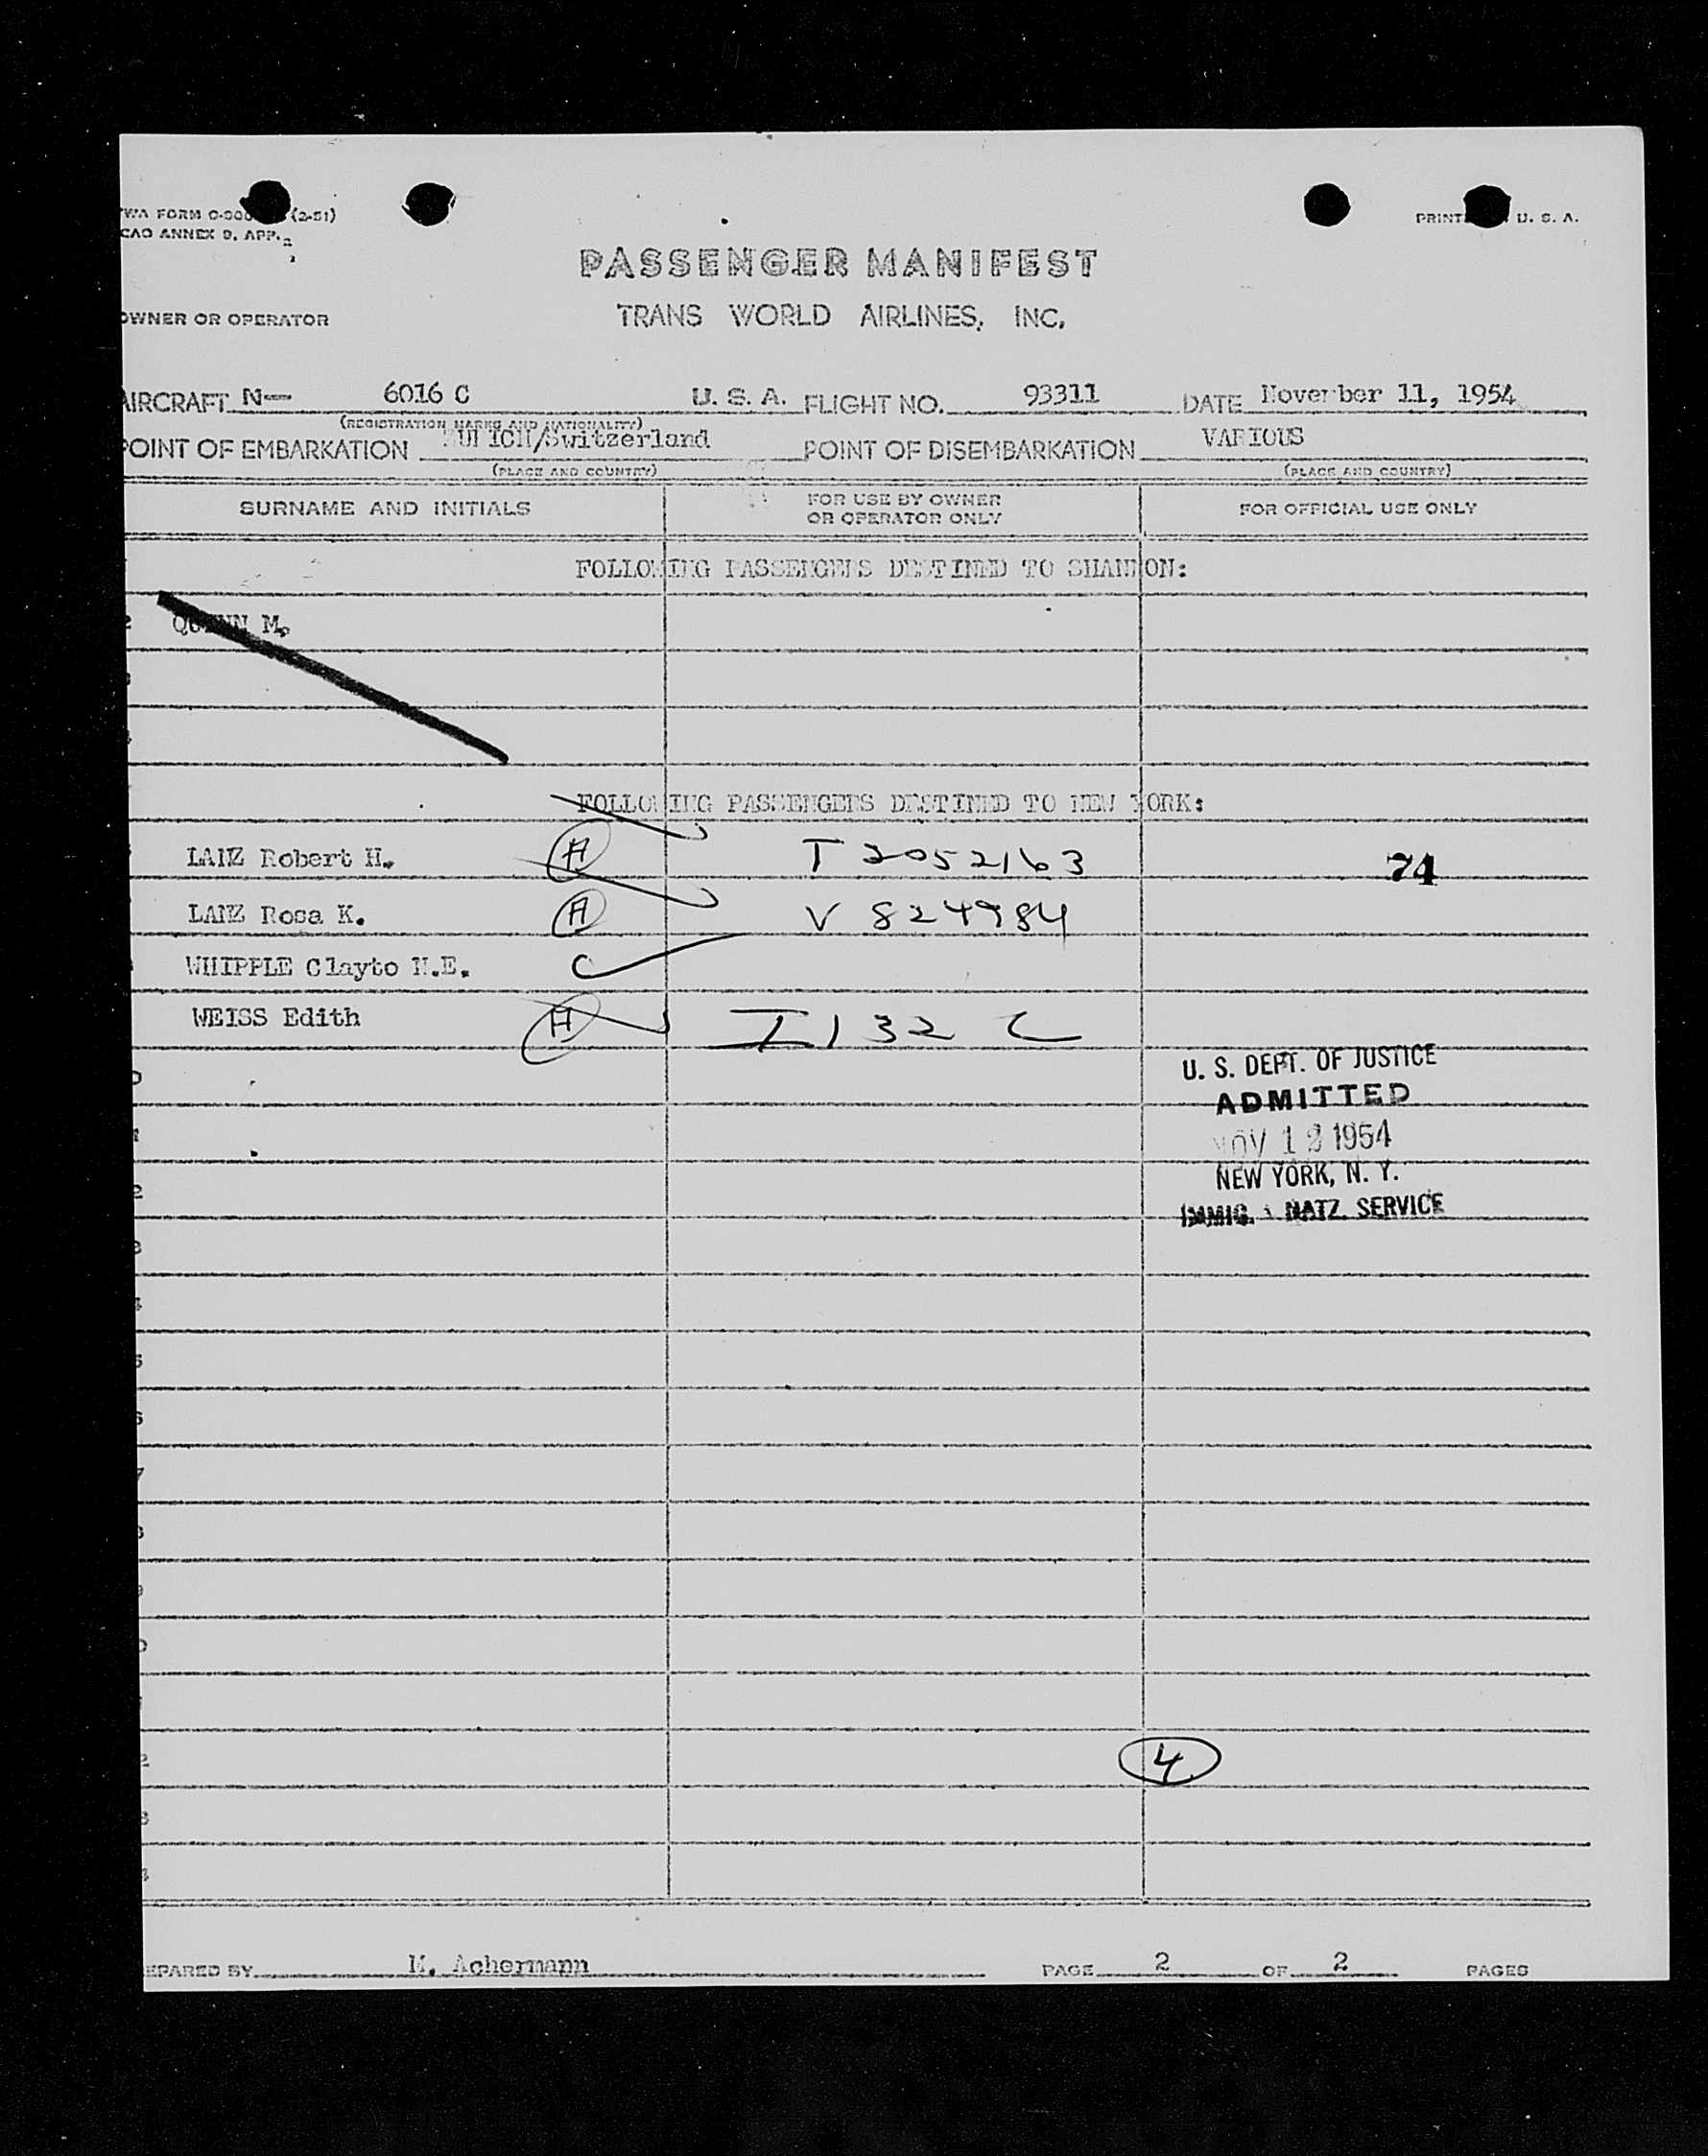 TWA FORM C-900 (2-51)
PRINTED U. S. A.
CAO ANNEX 9, APP. 2
PASSENGER MANIFEST
OWNER OR OPERATOR
TRANS WORLD AIRLINES, INC.
AIRCRAFT N— 6016 C U. S. A. FLIGHT NO. 93311 DATE November 11, 1954
(REGISTRATION MARKS AND NATIONALITY)
POINT OF EMBARKATION ZURICH/Switzerland POINT OF DISEMBARKATION VARIOUS
(PLACE AND COUNTRY) (PLACE AND COUNTRY)
SURNAME AND INITIALS FOR USE BY OWNER OR OPERATOR ONLY FOR OFFICIAL USE ONLY
FOLLOWING PASSENGERS DESTINED TO SHANNON:
2 QUINN M.
FOLLOWING PASSENGERS DESTINED TO NEW YORK:
LANZ Robert H. A T 2052163 74
LANZ Rosa K. A V 824984
WHIPPLE Clayto N.E. C
WEISS Edith A I 132 C
U. S. DEPT. OF JUSTICE
ADMITTED
NOV 12 1954
NEW YORK, N. Y.
IMMIG. & NATZ. SERVICE
4
PREPARED BY M. Achermann PAGE 2 OF 2 PAGES